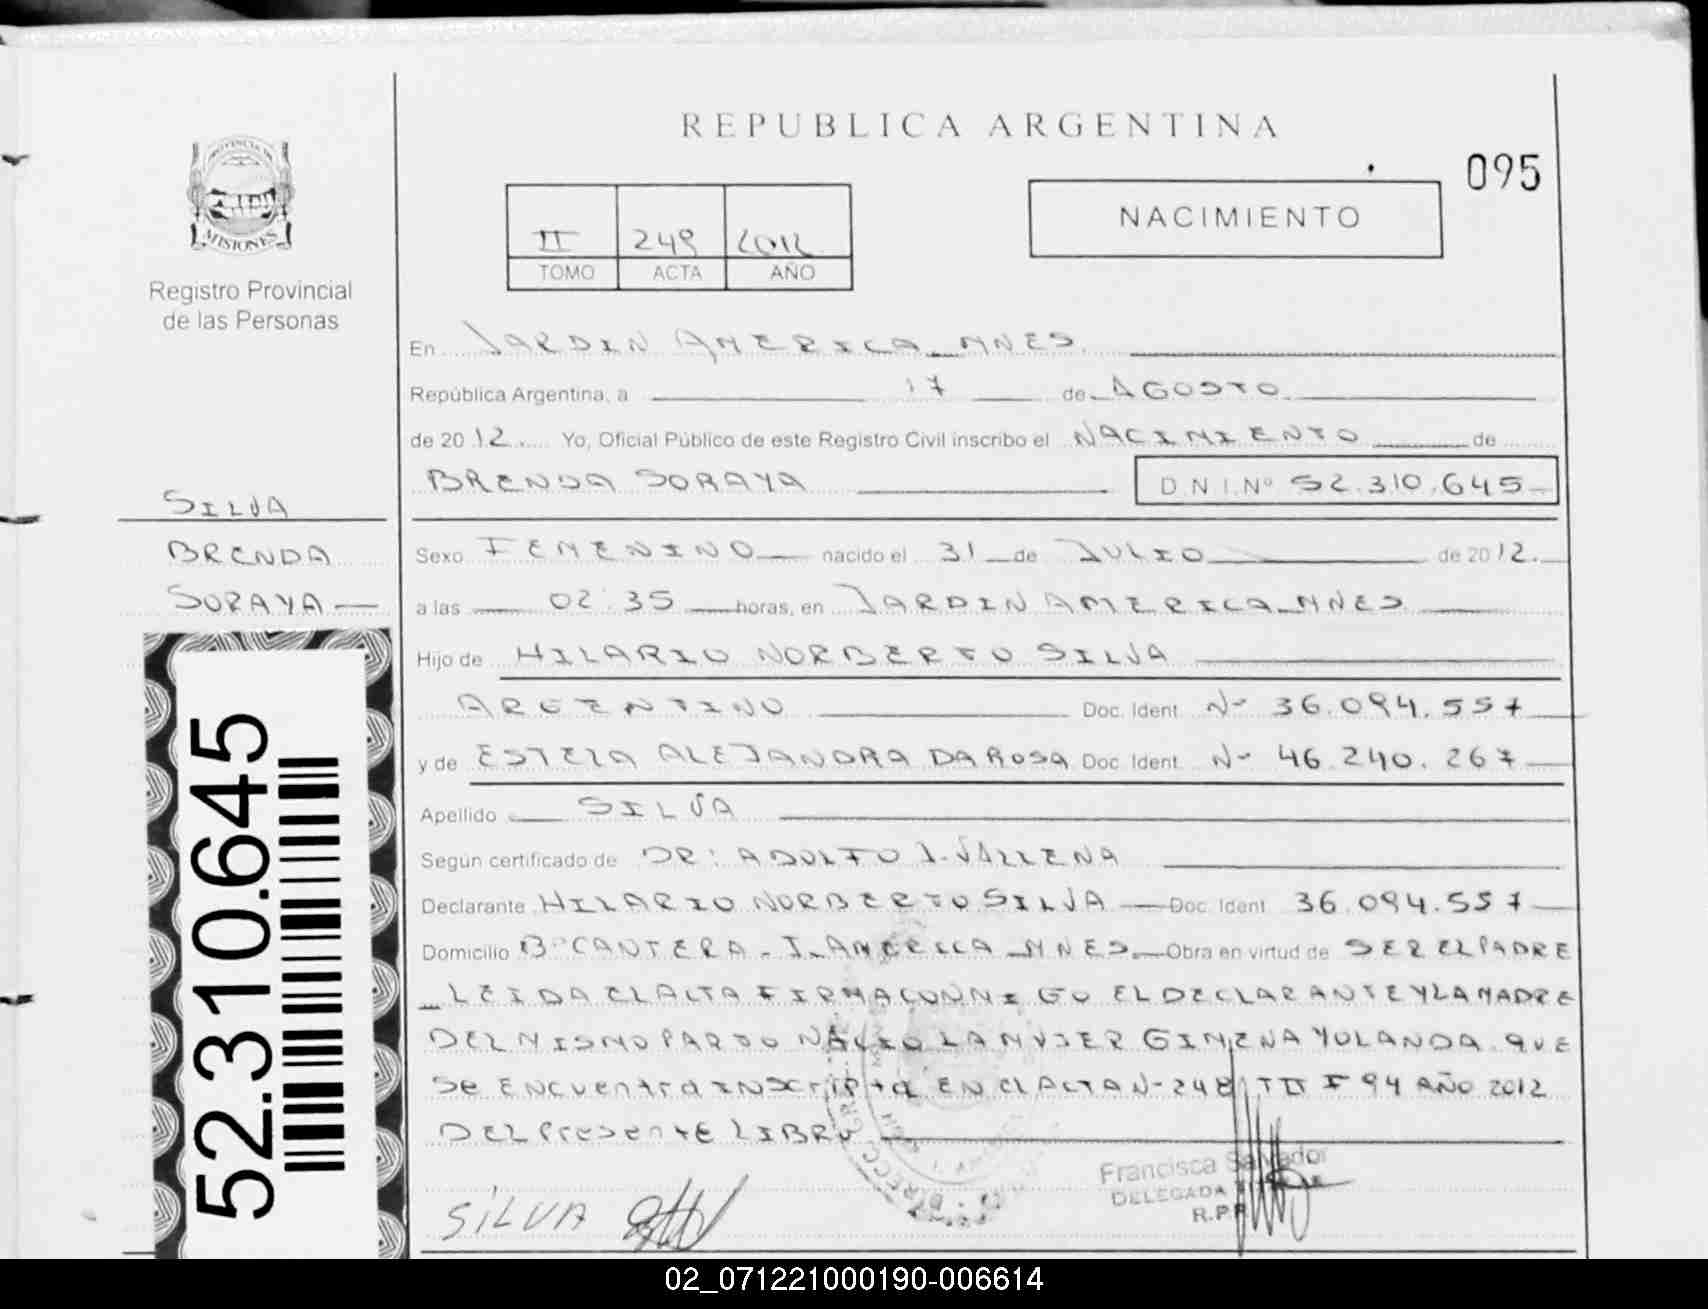 REPUBLICA ARGENTINA
095
PROVINCIA DE
MISIONES
Registro Provincial
de las Personas
II 249 2012
TOMO ACTA AÑO
NACIMIENTO
En JARDIN AMERICA MNES
República Argentina, a 17 de AGOSTO
de 2012 Yo, Oficial Público de este Registro Civil inscribo el NACIMIENTO de
BRENDA SORAYA D.N.I.Nº 52.310.645
SILVA
BRENDA
SORAYA
Sexo FEMENINO nacido el 31 de JULIO de 2012.
a las 02:35 horas, en JARDIN AMERICA MNES
Hijo de HILARIO NORBERTO SILVA
ARGENTINO Doc. Ident. Nº 36.094.557
y de ESTELA ALEJANDRA DA ROSA Doc. Ident. Nº 46.240.267
Apellido SILVA
Según certificado de DR: ADOLFO J. VALLENA
Declarante HILARIO NORBERTO SILVA Doc. Ident. 36.094.557
Domicilio Bº CANTERA - J. AMERICA MNES. Obra en virtud de SER EL PADRE
LEIDA EL ACTA FIRMA CONMIGO EL DECLARANTE Y LA MADRE
DEL MISMO PARTO NACIO LA MUJER GIMENA YOLANDA QUE
Se ENCUENTRA INSCRIPTA EN EL ACTA Nº 248 TII F 94 AÑO 2012
DEL PRESENTE LIBRO
52.310.645
SILVA
Francisca Salvador
DELEGADA
R.P.P.
02_071221000190-006614